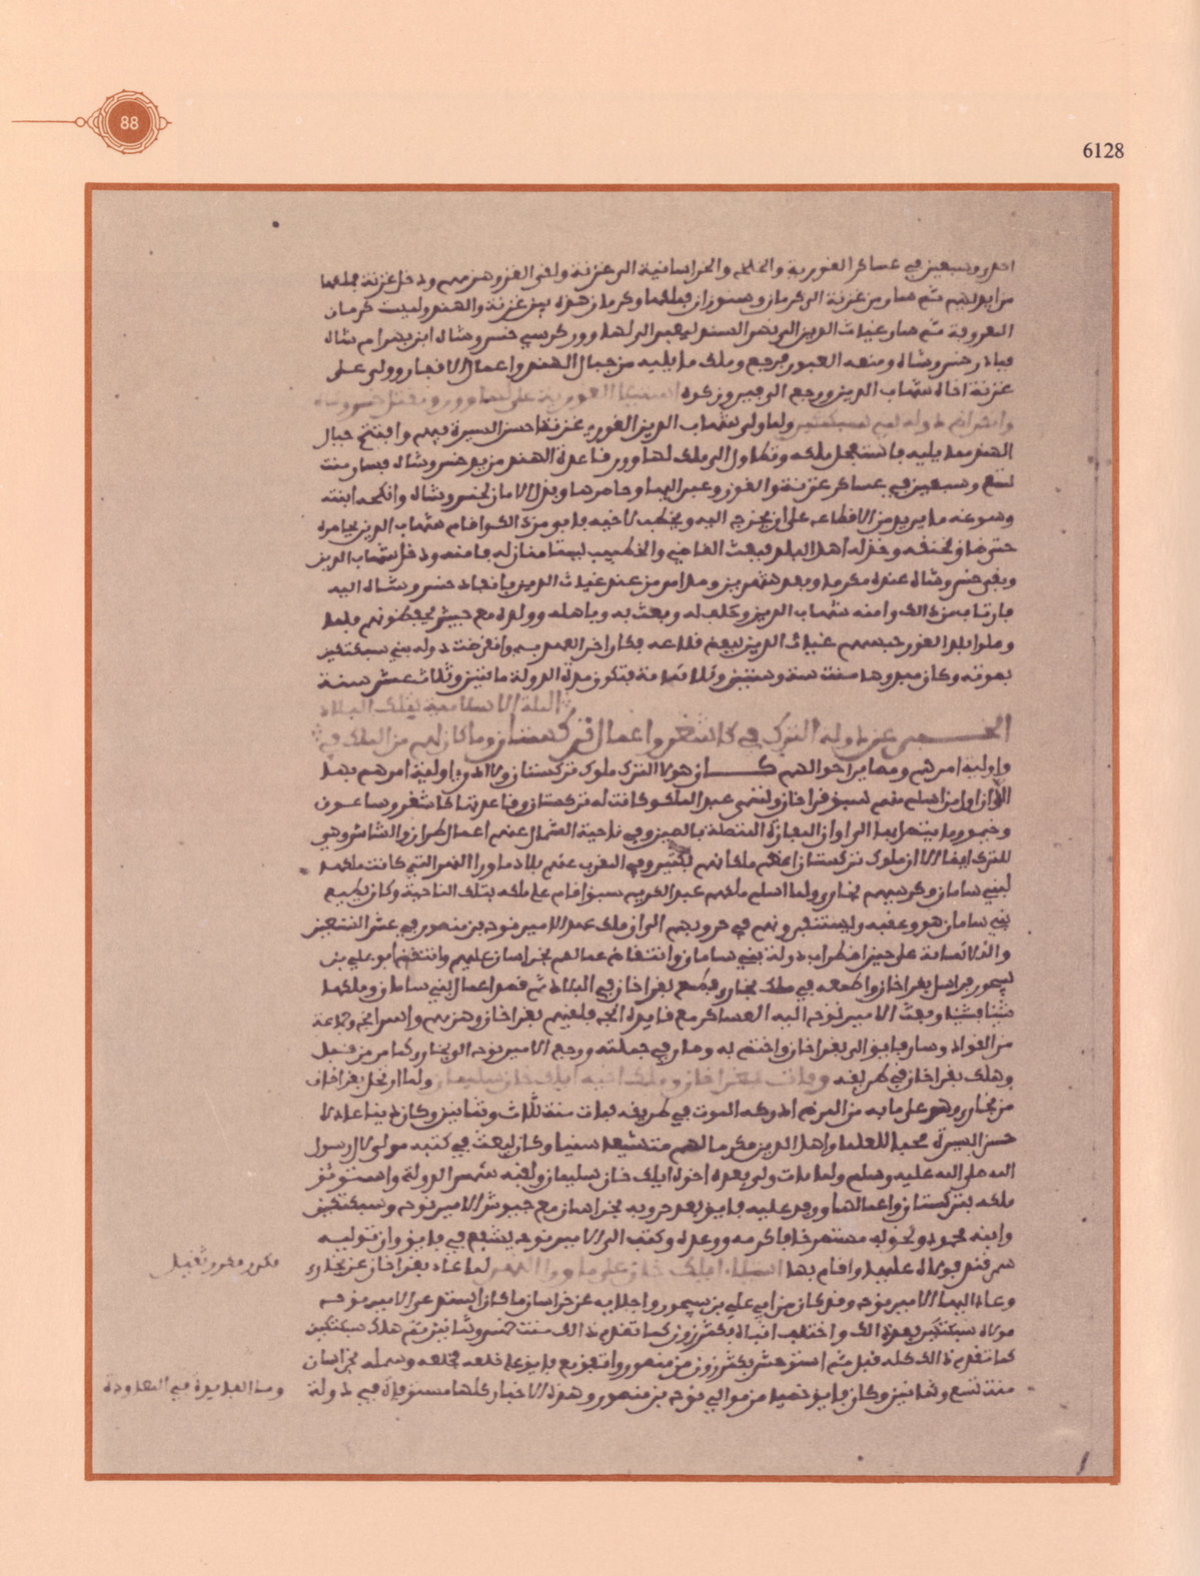 88
6128
احدى وسبعين في عساكر الغورية والخلج والخراسانية الى غزنة ولقى الغز وهزمهم ودخل غزنة فملكها
من ايديهم ثم سار من غزنة الى كرمان وسنوران فملكها وكرمان هذه بين غزنة والهند وليست كرمان
المعروفة ثم سار غياث الدين الى نهر السند ليعبر الى لهاوور كرسي خسروشاه ابن بهرام شاه
فبادر خسروشاه ومنعه العبور فرجع وملك ما يليه من جبال الهند واعمال الافغار وولى على
غزنة اخاه شهاب الدين ورجع الى فيروزكوه استيلا الغورية على لهاوور ومقتل خسروشاه
وانقراض دولة بني سبكتكين ولما ولى شهاب الدين الغوري غزنة احسن السيرة فيهم وافتتح جبال
الهند مما يليه فاستفحل ملكه وتطاول الى ملك لهاوور قاعدة الهند من يد خسروشاه فسار سنت
تسع وسبعين في عساكر غزنة والغور وعبر اليها وحاصرها وبذل الامان لخسروشاه وانكحه ابنته
وسوغه ما يريد من الاقطاع على ان يخرج اليه ويخطب لاخيه فابى من ذالك واقام شهاب الدين يحاصره
حتى ضاق مخنقه وخذله اهل البلد فبعث القاضي والخطيب ليستامنا له فامنه ودخل شهاب الدين
وبقى خسروشاه عنده مكرما وبعد شهرين وصل امر من عند غياث الدين بانفاذ خسروشاه اليه
فارتاب من ذالك وامنه شهاب الدين وحلف له وبعث به وباهله وولده مع جيش يحفظونهم فلما
وصلوا بلد الغور حبسهم غياث الدين ببعض قلاعه فكان اخر العهد بهم وانقرضت دولة بني سبكتكين
بموته وكان مبدوها سنت ستة وستين وثلاثماية فتكون مدة الدولة مائتين وثلاث عشر سنة
الملة الاسلامية بتلك البلاد
الخبر عن دولة الترك في كاشغر واعمال تركستان وما كان لهم من الملك في
واولية امرهم ومصاير احوالهم كان هولا الترك ملوك تركستان ولا ادري اولية امرهم بها
الا ان اول من اسلم منهم سبق قراخان وتسمى عبد الملك وكانت له تركستان وقاعدتها كاشغر وساغون
وخيمو وما يتصل بها الى اوان المفازة المتصلة بالصين وفي ناحية الشمال عنهم اعمال طراز والشاش وهي
للترك ايضا الا ان ملوك تركستان اعظم ملكا منهم بكثير وفي المغرب عنهم بلاد ما ورا النهر التي كانت ملكها
لبني سامان وكرسيهم بخارى ولما اسلم ملكهم عبد الكريم سبق اقام على ملكه بتلك الناحية وكان يطيع
بني سامان هو وعقبه وليستنفرونهم في حروبهم الى ان ملك عهد الامير نوح بن منصور في عشر التسعين
والثلاثماية على حين اضطراب دولة بني سامان وانتقاض عمالهم بخراسان عليهم وانتقض ابو علي بن
سيمجور فراسل بغراخان واطمعه في ملك بخارى فطمع بغراخان في البلاد ثم قصد اعمال بني سامان وملكها
شيئا فشيئا وبعث الامير نوح اليه العساكر مع قايده انج فلقيهم بغراخان وهزمهم واسر انج وجماعة
من القواد وسار فايق الى بغراخان واختص به وصار في جملته ورجع الامير نوح الى بخارى كما مر من قبل
وهلك بغراخان في طريقه وفاة بغراخان وملك اخيه ايلك خان سليمان ولما ارتحل بغراخان
من بخارى وهو على ما به من المرض ادركه الموت في طريقه فمات سنة ثلاث وثمانين وكان دينا عادلا
حسن السيرة محبا للعلما واهل الدين مكرما لهم متشيعا سنيا وكان يبعث في كتبه مولى ال رسول
الله صلى الله عليه وسلم ولما مات ولى بعده اخوه ايلك خان سليمان ولقبه شهس الدولة واستوثق
ملكه بتركستان واعمالها ووفد عليه فايق بعد حروبه بخراسان مع جيوش الامير نوح وسبكتكين
وابنه محمود ولحق به مستصرخا فاكرمه ووعده وكتب الى الامير نوح يشفع في فايق وان توليه
سمرقند فولاه عليها واقام بها استيلاء ايلك خان على ما ورا النهر لما عاد بغراخان عن بخارى
وعاد اليها الامير نوح وقد كان من ابي علي بن سيمجور واجلابه عن خراسان ما كان استدعى الامير نوح
مولاه سبكتكين بعد ذالك واختلف ابناه بكثرزون كما تقدم ذالك سنت خمس وثمانين ثم هلك سبكتكين
كما تقدم ذالك كله قبل ثم استوحش بكثرزون من منصور واتفق مع فايق على خلعه فخلعه وسمله بخراسان
سنت تسع وثمانين وكان فايق خصيا من موالي نوح بن منصور وهذه الاخبار كلها مستوفاة في دولة